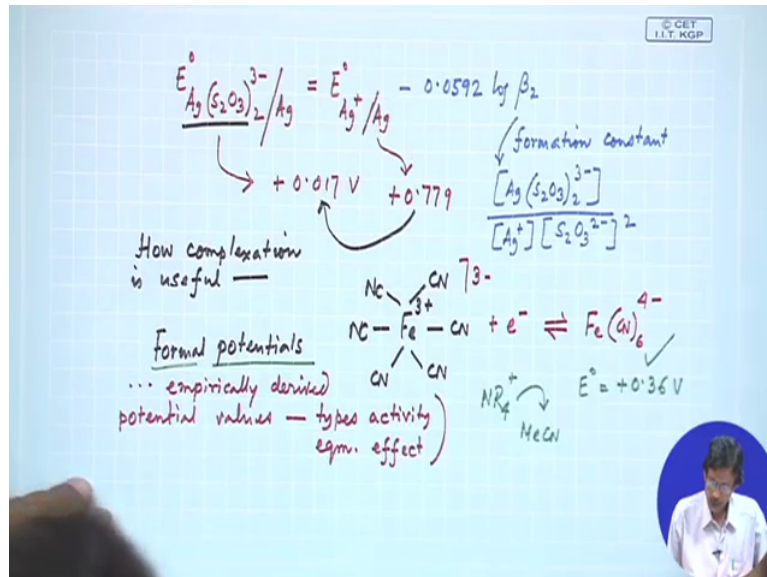 © CET
I.I.T. KGP
E°Ag(S2O3)2^3-/Ag = E°Ag+/Ag - 0.0592 log β2
formation constant
+ 0.017 V +0.779
[Ag(S2O3)2^3-]
[Ag+][S2O3^2-]^2
How complexation
is useful —
NC CN ]3-
3+
NC - Fe - CN + e- ⇌ Fe(CN)6^4-
CN CN
E° = +0.36 V
NR4+
MeCN
Formal potentials
... empirically derived
potential values — types activity
eqm. effect